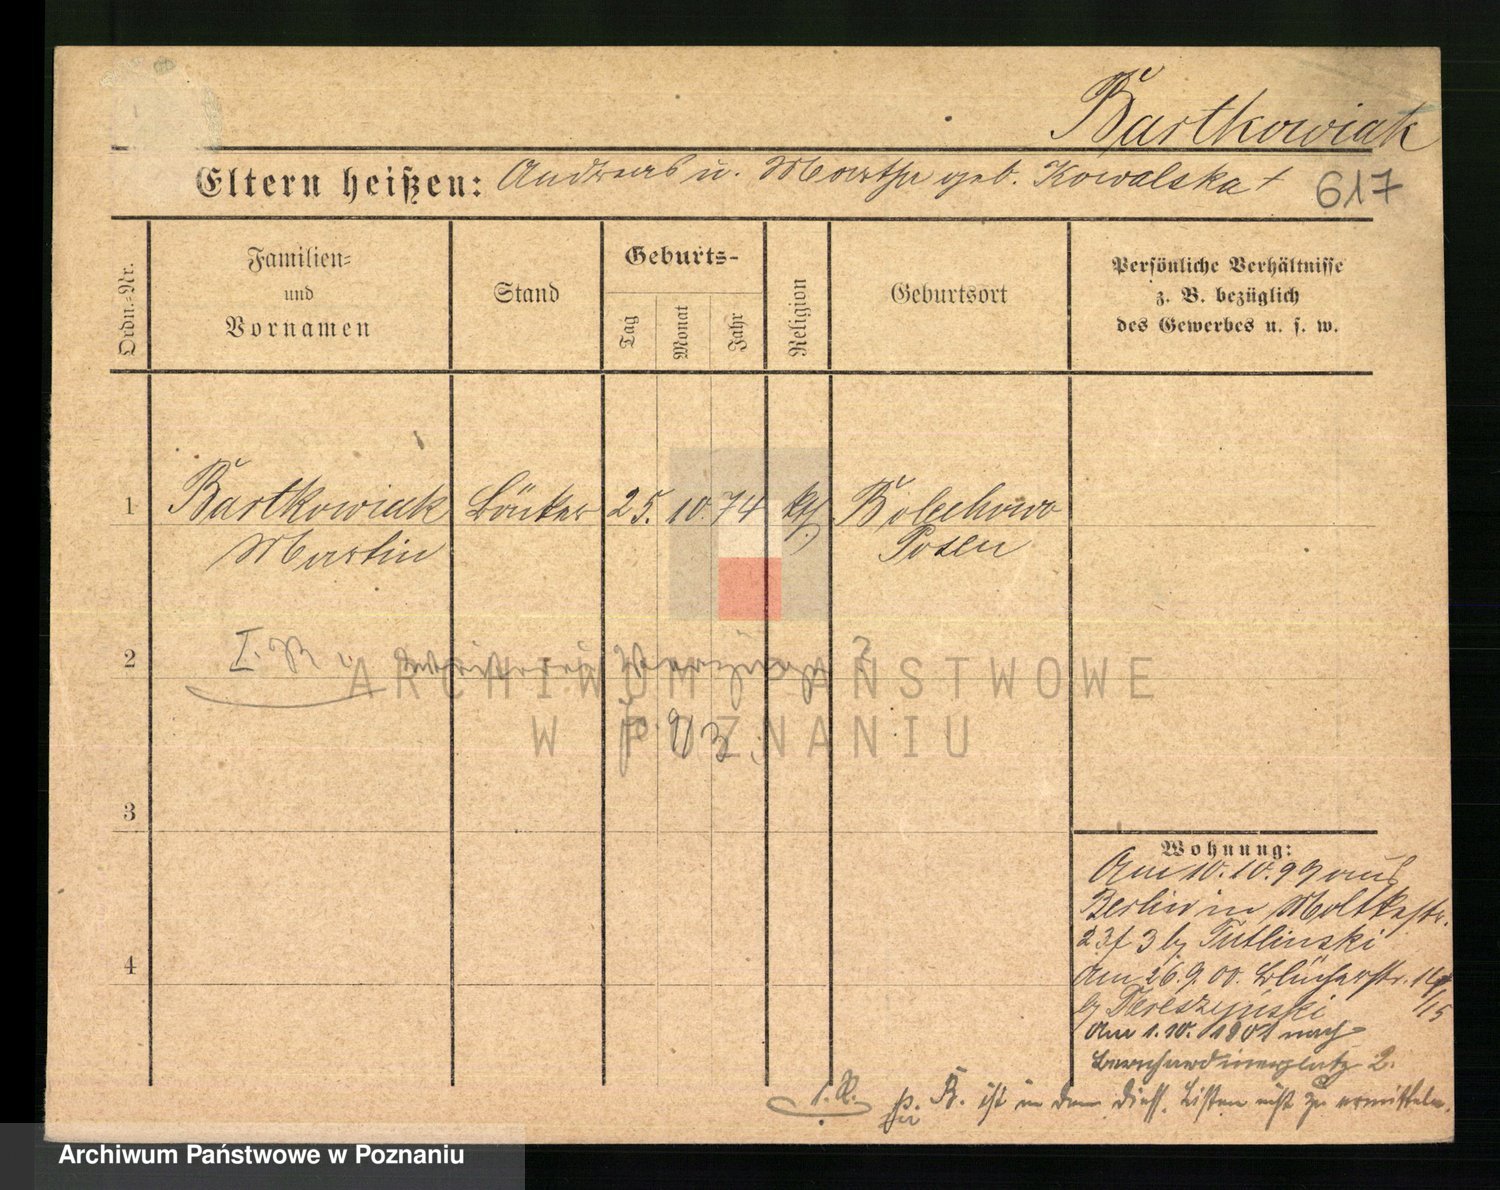 Bartkowiak
Eltern heißen: Andreas u. Martha geb. Kowalska +
617
Ordn.-Nr.
Familien- und Vornamen
Stand
Geburts-
Tag
Monat
Jahr
Religion
Geburtsort
Persönliche Verhältnisse
z. B. bezüglich
des Gewerbes u. s. w.
1 Bartkowiak Böttcher 25. 10. 74 kth Bolechowo
Martin Posen
2
3
4
Wohnung:
Am 10.10.99 aus
Berlin in Moltkestr.
23 f 3 by Tutlinski
Am 26.9.00. Blücherstr.
by
Am 1.10.1901 nach
Bernhardinerplatz 2.
B. ist in den diess. Listen nicht zu ermitteln.
ARCHIWUM PAŃSTWOWE
W POZNANIU
Archiwum Państwowe w Poznaniu